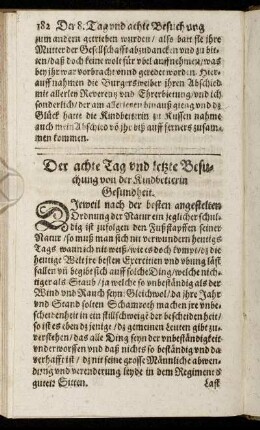 382 Der 8. Tag vnd achte Besuchung
zum andern getrieben wurden / also bate sie ihre
Mutter der Gesellschafft abzudancken vnd zu bit-
ten / daß doch keine wolt für vbel auffnehmen / was
bey ihr war vorbracht vnnd geredet worden. Hier-
auff nahmen die Burgersweiber ihren Abschied
mit allerley Reverentz vnd Ehrerbietung / vnd ich
sonderlich / der am allerletzen hinauß gieng vnd dz
Glück hatte die Kindbetterin zu Küssen nahme
auch mein Abschied vō ihr biß auff ferners zusam-
men kommen.
Der achte Tag vnd letzte Besu-
chung von der Kindbetterin
Gesundheit.
DIeweil nach der besten angestelten
Ordnung der Natur ein jeglicher schul-
dig ist zufolgen den Fußstapffen seiner
Natur / so muß man sich nit verwundern heutigs
Tags wann ich nit weiß / wie es doch kompt / dz die
heutige Welt jre besten Exercitien vnd übung läst
fallen vñ begibt sich auff solche Ding / welche nich-
tiger als Staub / ja welche so vnbeständig als der
Wind vnd Rauch seyn: Gleichwol / da jhre Jahr
vnd Stand solten Schamroth machen jre vnbe-
scheidenheit in ein stillschweige der bescheidenheit /
so ist es eben dz jenige / dz gemeinen Leuten gibt zu-
verstehen / das alle Ding seyn der vnbeständigkeit
vnderworffen vnd daß nichts so beständig vnd da-
verhafft ist / dz nit seine grosse Männliche abwen-
dung vnd verenderung leyde in dem Regiment
guter Sitten. Last